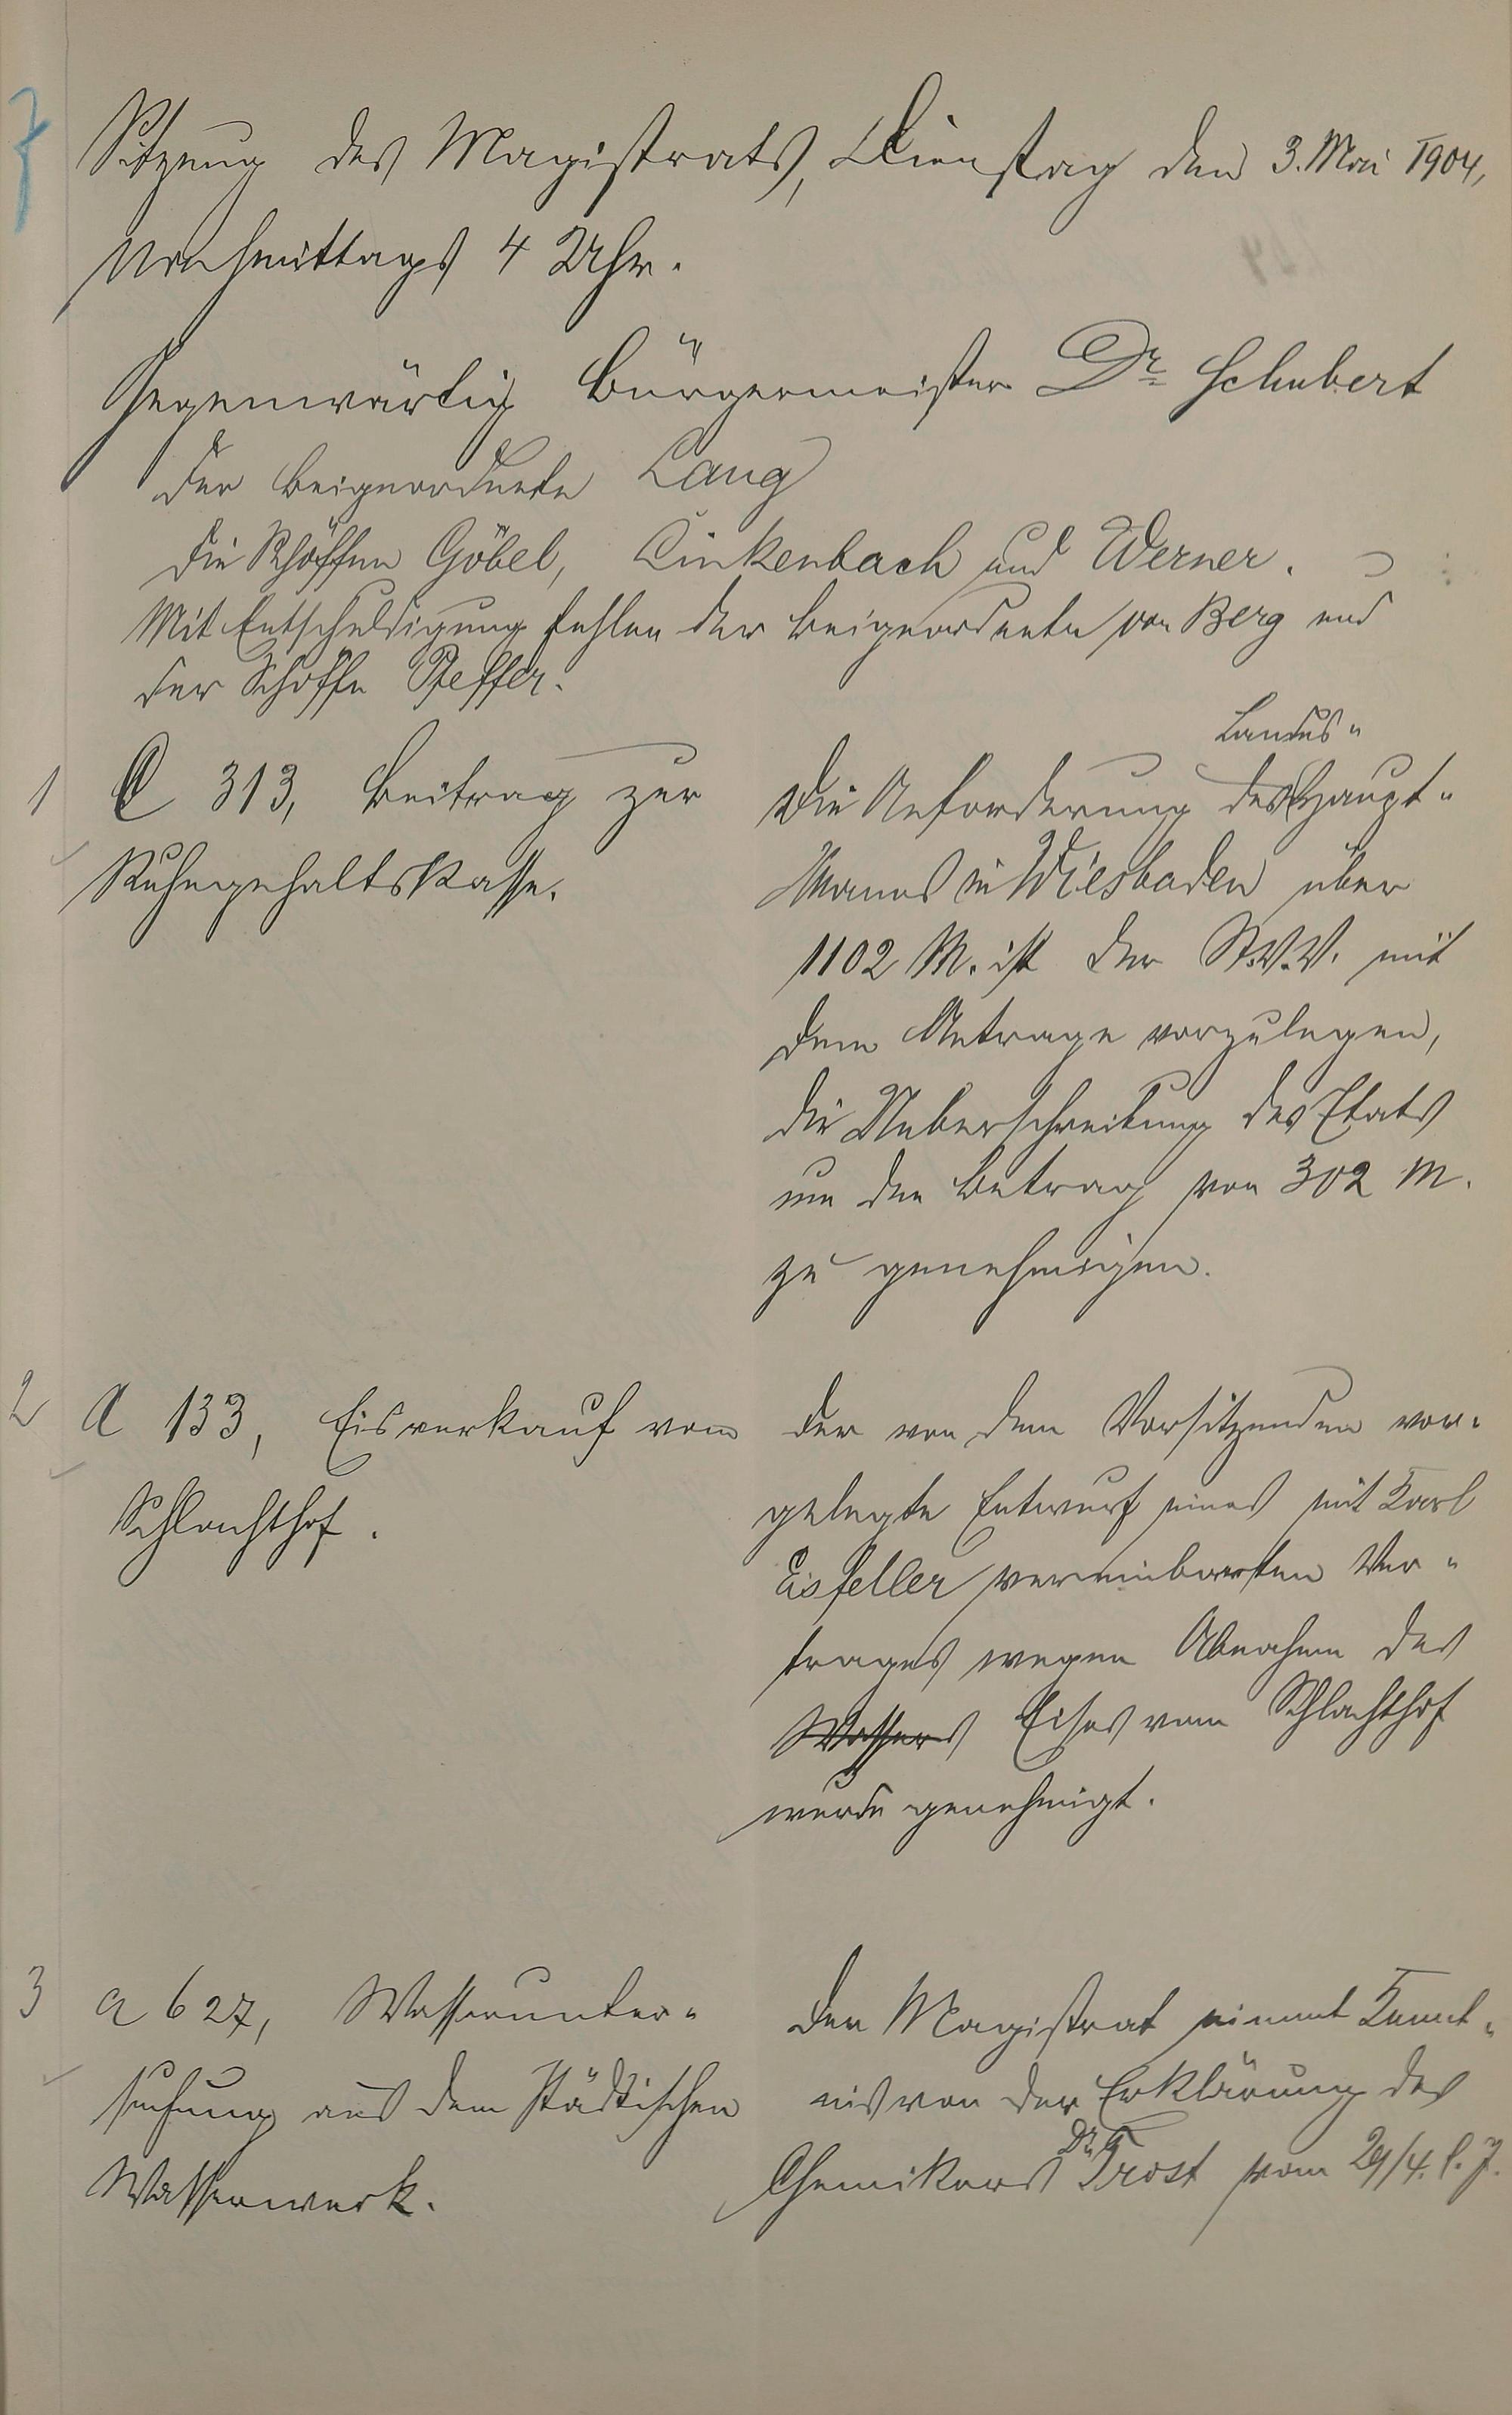 7
Sitzung des Magistrats, Dienstag den 3. Mai 1904,
Nachmittags 4 Uhr.
Gegenwärtig Bürgermeister Dr. Schubert
der Beigeordnete Lang
die Schöffen Göbel, Linkenbach und Werner.
Mit Entschuldigung fehlen der Beigeordnete von Berg und
der Schöffe Pfeffer.
1 C 313, Beitrag zur
Ruhegehaltskasse.
Landes-
Die Anforderung des Haupt-
manns in Wiesbaden über
1102 M. ist der St.V.V. mit
dem Antrage vorzulegen,
die Ueberschreitung des Etats
um den Betrag von 302 M.
zu genehmigen.
2 A 133, Eisverkauf vom
Schlachthof.
Der von dem Vorsitzenden vor-
gelegte Entwurf eines mit Karl
Eisfeller vereinbarten Ver-
trages wegen Abnahme des
Wassers Eises vom Schlachthof
wurde genehmigt.
3 a 627, Wasserunter-
suchung aus dem städtischen
Wasserwerk.
Der Magistrat nimmt Kennt-
nis von der Erklärung des
Chemikers Dr. Trost vom 29/4. l. J.